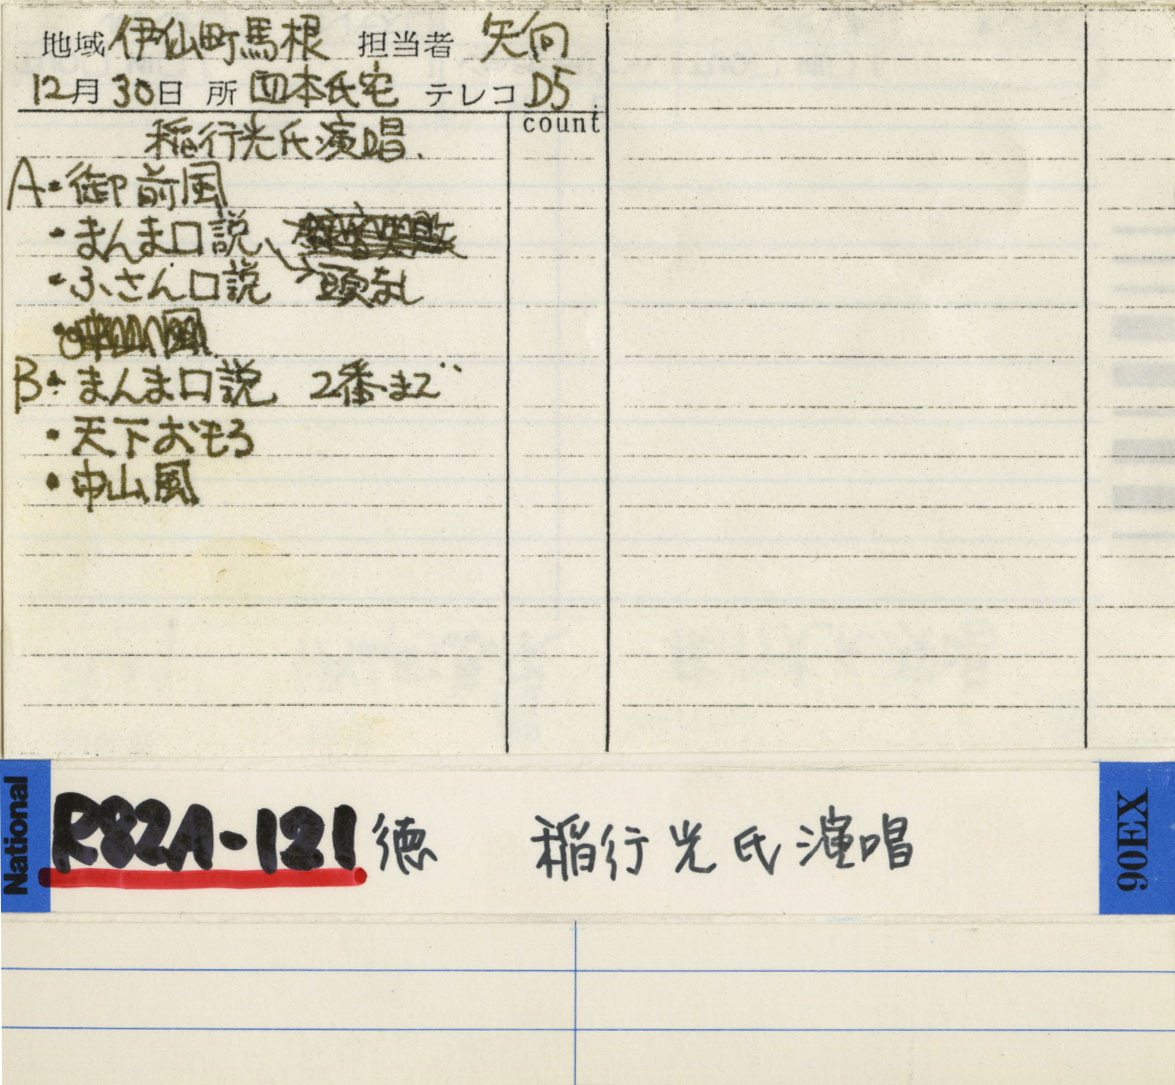 地域 伊仙町馬根 担当者 矢向
12月30日 所 四本氏宅 テレコ D5
count
稲行光氏演唱.
A・御前風
・まんま口説
・ふさん口説 → 頭なし
B・まんま口説 2番まで
・天下おもろ
・中山風
National
R82A-121 徳 稲行光氏演唱
90EX